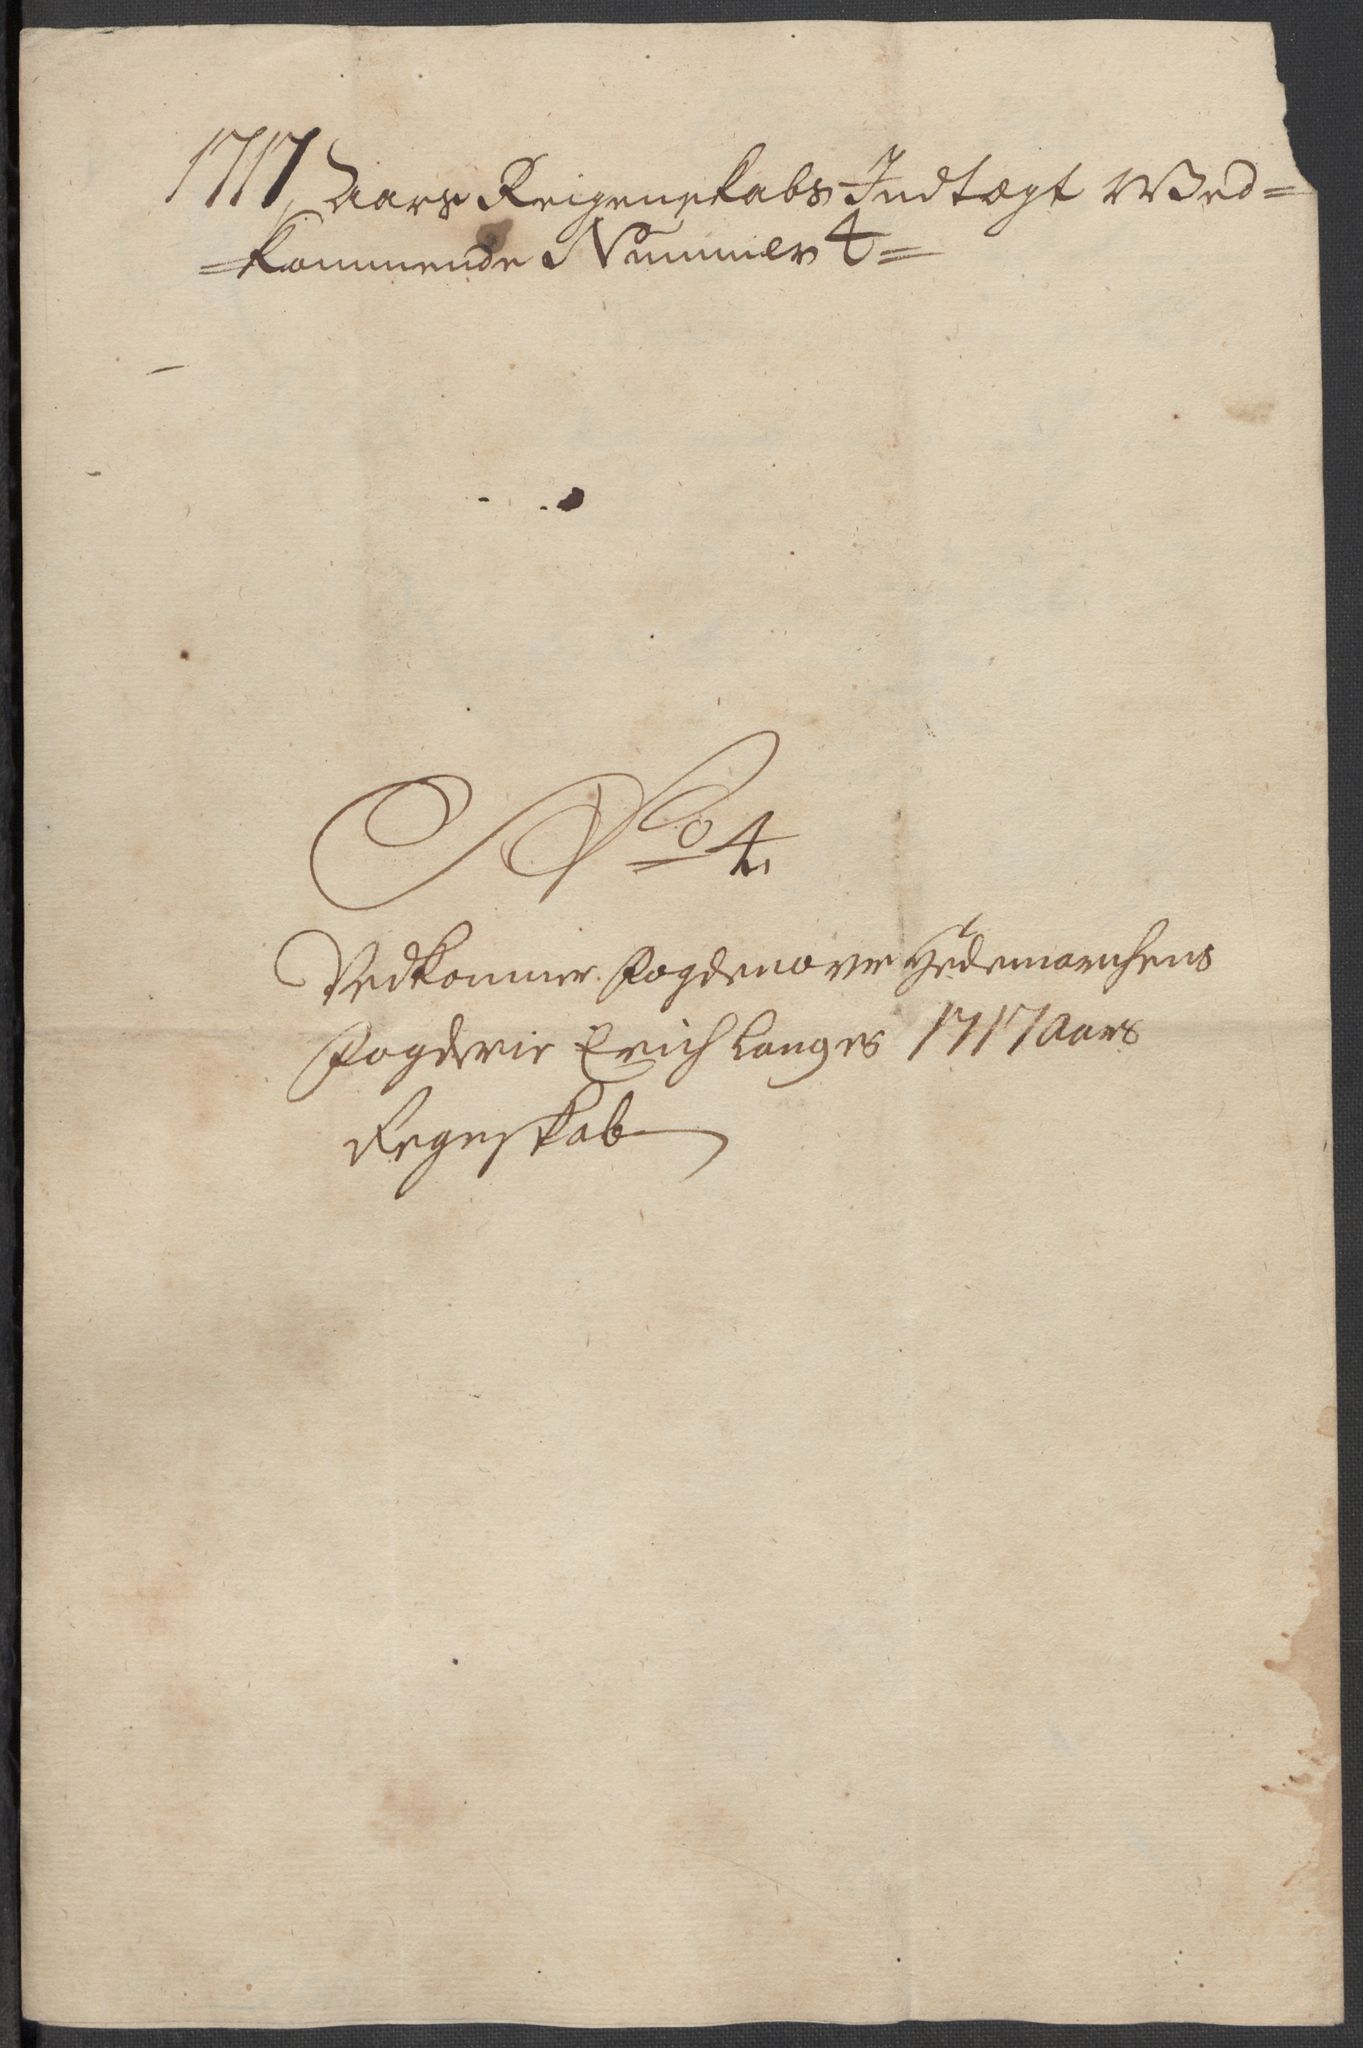 1717 Aars Reigenskabs Indtægt Wed=
=kommende Nummer 4=
No 4.
Vedkommer Fogden over Hedemarchens
Fogderie Erich Langes 1717 Aars
Regnskab